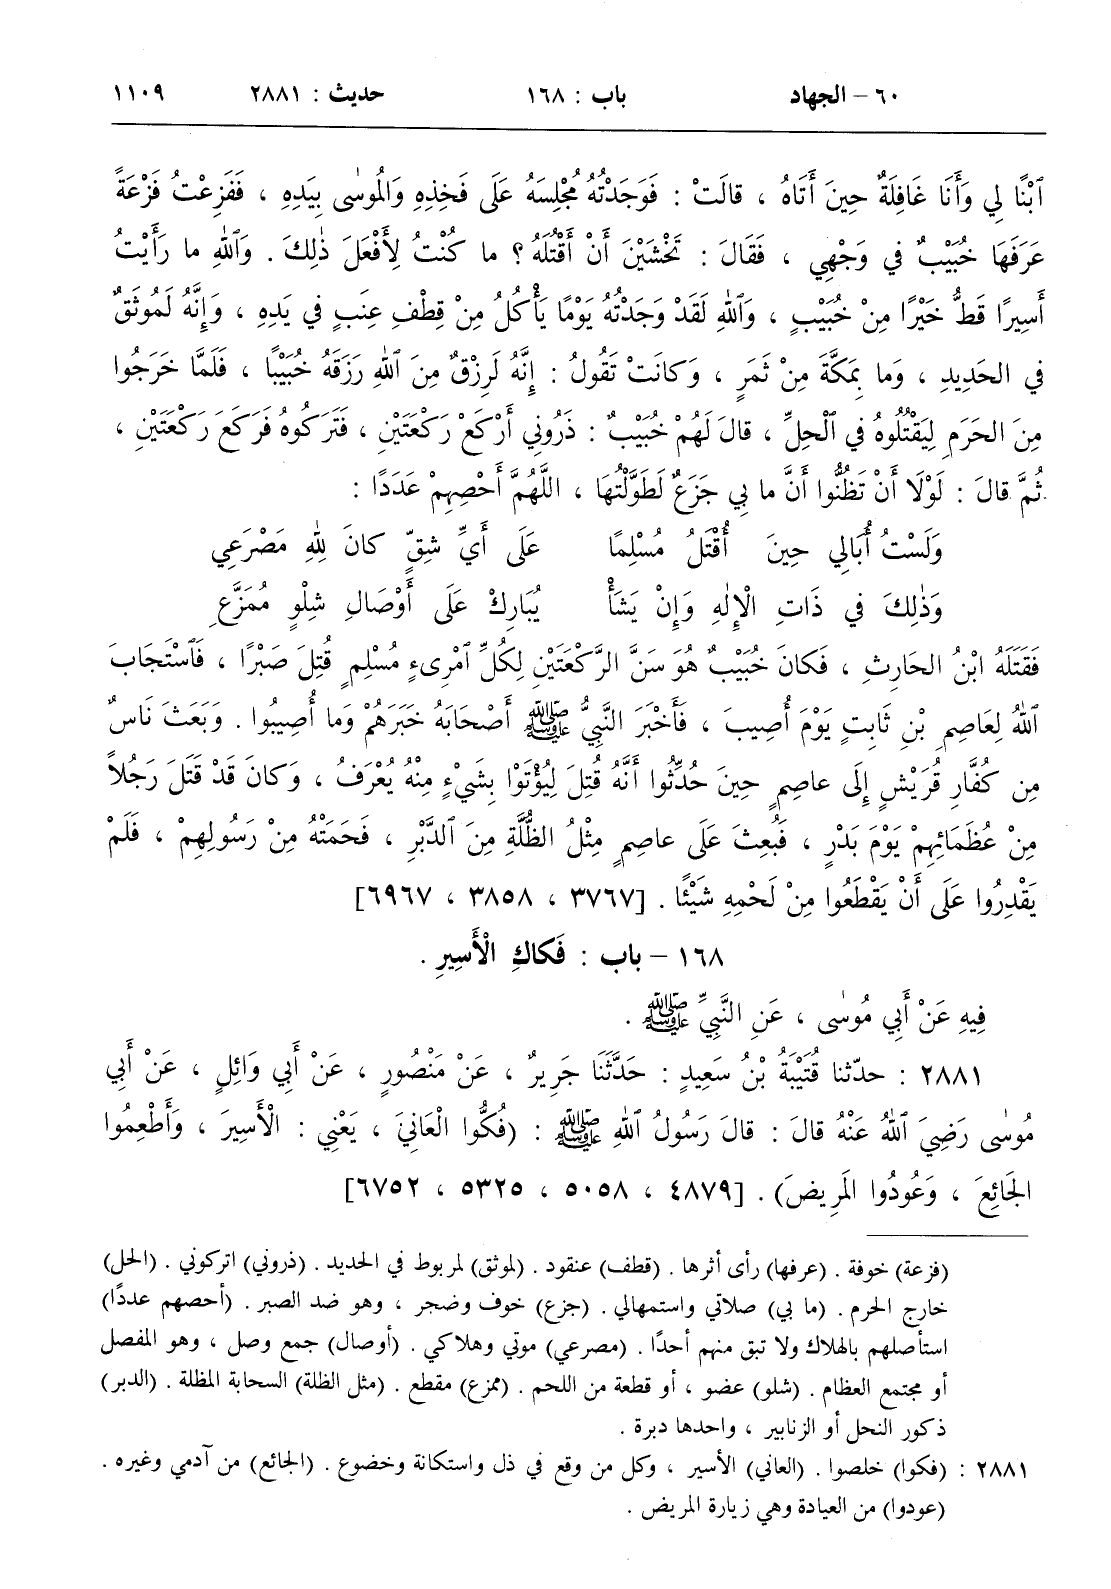 ٦٠ - الجهاد باب : ١٦٨ حديث : ٢٨٨١ ١١٠٩
ٱبْنًا لِي وَأَنَا غَافِلَةٌ حِينَ أَتَاهُ ، قالَتْ : فَوَجَدْتُهُ مُجْلِسَهُ عَلَى فَخِذِهِ وَالْمُوسٰى بِيَدِهِ ، فَفَزِعْتُ فَزْعَةً
عَرَفَهَا خُبَيْبٌ في وَجْهِي ، فَقَالَ : تَخْشَيْنَ أَنْ أَقْتُلَهُ ؟ ما كُنْتُ لِأَفْعَلَ ذٰلِكَ . وَٱللهِ ما رَأَيْتُ
أَسِيرًا قَطُّ خَيْرًا مِنْ خُبَيْبٍ ، وَٱللهِ لَقَدْ وَجَدْتُهُ يَوْمًا يَأْكُلُ مِنْ قِطْفِ عِنَبٍ في يَدِهِ ، وَإِنَّهُ لَمُوثَقٌ
في الحَدِيدِ ، وَما بِمَكَّةَ مِنْ ثَمَرٍ ، وَكانَتْ تَقُولُ : إِنَّهُ لَرِزْقٌ مِنَ ٱللهِ رَزَقَهُ خُبَيْبًا ، فَلَمَّا خَرَجُوا
مِنَ الحَرَمِ لِيَقْتُلُوهُ في ٱلْحِلِّ ، قالَ لَهُمْ خُبَيْبٌ : ذَرُونِي أَرْكَعْ رَكْعَتَيْنِ ، فَتَرَكُوهُ فَرَكَعَ رَكْعَتَيْنِ ،
ثُمَّ قالَ : لَوْلَا أَنْ تَظُنُّوا أَنَّ ما بِي جَزَعٌ لَطَوَّلْتُهَا ، اللَّهُمَّ أَحْصِهِمْ عَدَدًا :
وَلَسْتُ أُبَالِي حِينَ أُقْتَلُ مُسْلِمًا عَلَى أَيِّ شِقٍّ كانَ لِلّٰهِ مَصْرَعِي
وَذٰلِكَ في ذَاتِ الْإِلٰهِ وَإِنْ يَشَأْ يُبَارِكْ عَلَى أَوْصَالِ شِلْوٍ مُمَزَّعِ
فَقَتَلَهُ ابْنُ الحَارِثِ ، فَكانَ خُبَيْبٌ هُوَ سَنَّ الرَّكْعَتَيْنِ لِكُلِّ ٱمْرِىءٍ مُسْلِمٍ قُتِلَ صَبْرًا ، فَٱسْتَجَابَ
ٱللهُ لِعَاصِمِ بْنِ ثَابِتٍ يَوْمَ أُصِيبَ ، فَأَخْبَرَ النَّبِيُّ ﷺ أَصْحَابَهُ خَبَرَهُمْ وَما أُصِيبُوا . وَبَعَثَ نَاسٌ
مِن كُفَّارِ قُرَيْشٍ إِلَى عاصِمٍ حِينَ حُدِّثُوا أَنَّهُ قُتِلَ لِيُؤْتَوْا بِشَيْءٍ مِنْهُ يُعْرَفُ ، وَكانَ قَدْ قَتَلَ رَجُلاً
مِنْ عُظَمَائِهِمْ يَوْمَ بَدْرٍ ، فَبُعِثَ عَلَى عاصِمٍ مِثْلُ الظُّلَّةِ مِنَ ٱلدَّبْرِ ، فَحَمَتْهُ مِنْ رَسُولِهِمْ ، فَلَمْ
يَقْدِرُوا عَلَى أَنْ يَقْطَعُوا مِنْ لَحْمِهِ شَيْئًا . [٣٧٦٧ ، ٣٨٥٨ ، ٦٩٦٧]
١٦٨ - باب : فَكاكِ الْأَسِيرِ .
فِيهِ عَنْ أَبِي مُوسٰى ، عَنِ النَّبِيِّ ﷺ .
٢٨٨١ : حدّثنا قُتَيْبَةُ بْنُ سَعِيدٍ : حَدَّثَنَا جَرِيرٌ ، عَنْ مَنْصُورٍ ، عَنْ أَبِي وَائِلٍ ، عَنْ أَبِي
مُوسٰى رَضِيَ ٱللهُ عَنْهُ قالَ : قالَ رَسُولُ ٱللهِ ﷺ : (فُكُّوا الْعَانِيَ ، يَعْنِي : الْأَسِيرَ ، وَأَطْعِمُوا
الجَائِعَ ، وَعُودُوا المَرِيضَ) . [٤٨٧٩ ، ٥٠٥٨ ، ٥٣٢٥ ، ٦٧٥٢]
(فزعة) خوفة . (عرفها) رأى أثرها . (قطف) عنقود . (لموثق) لمربوط في الحديد . (ذروني) اتركوني . (الحل)
خارج الحرم . (ما بي) صلاتي واستمهالي . (جزع) خوف وضجر ، وهو ضد الصبر . (أحصهم عددًا)
استأصلهم بالهلاك ولا تبق منهم أحدًا . (مصرعي) موتي وهلاكي . (أوصال) جمع وصل ، وهو المفصل
أو مجتمع العظام . (شلو) عضو ، أو قطعة من اللحم . (ممزع) مقطع . (مثل الظلة) السحابة المظلة . (الدبر)
ذكور النحل أو الزنابير ، واحدها دبرة .
٢٨٨١ : (فكوا) خلصوا . (العاني) الأسير ، وكل من وقع في ذل واستكانة وخضوع . (الجائع) من آدمي وغيره .
(عودوا) من العيادة وهي زيارة المريض .